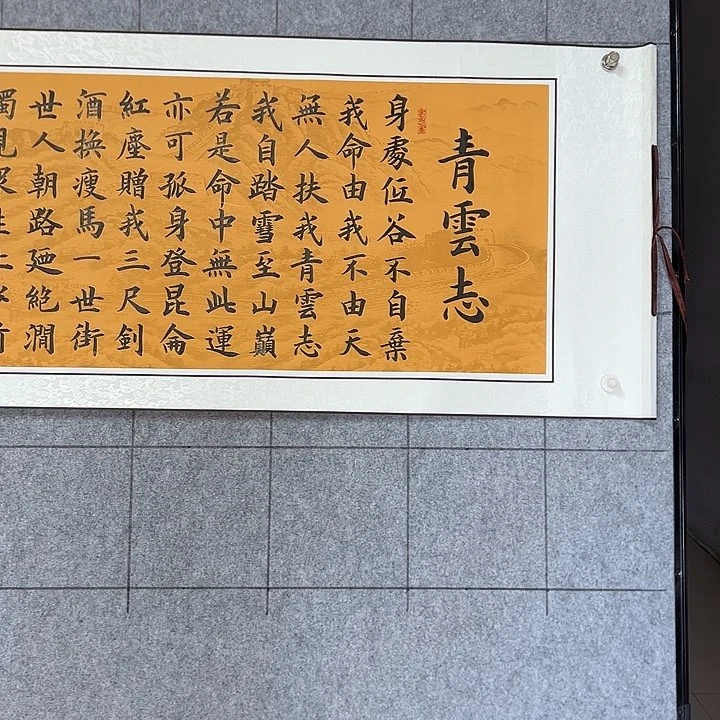 青雲志
身處低谷不自棄
我命由我不由天
無人扶我青雲志
我自踏雪至山巔
若是命中無此運
亦可孤身登昆侖
紅塵贈我三尺劍
酒換瘦馬一世街
世人朝路廻絕澗